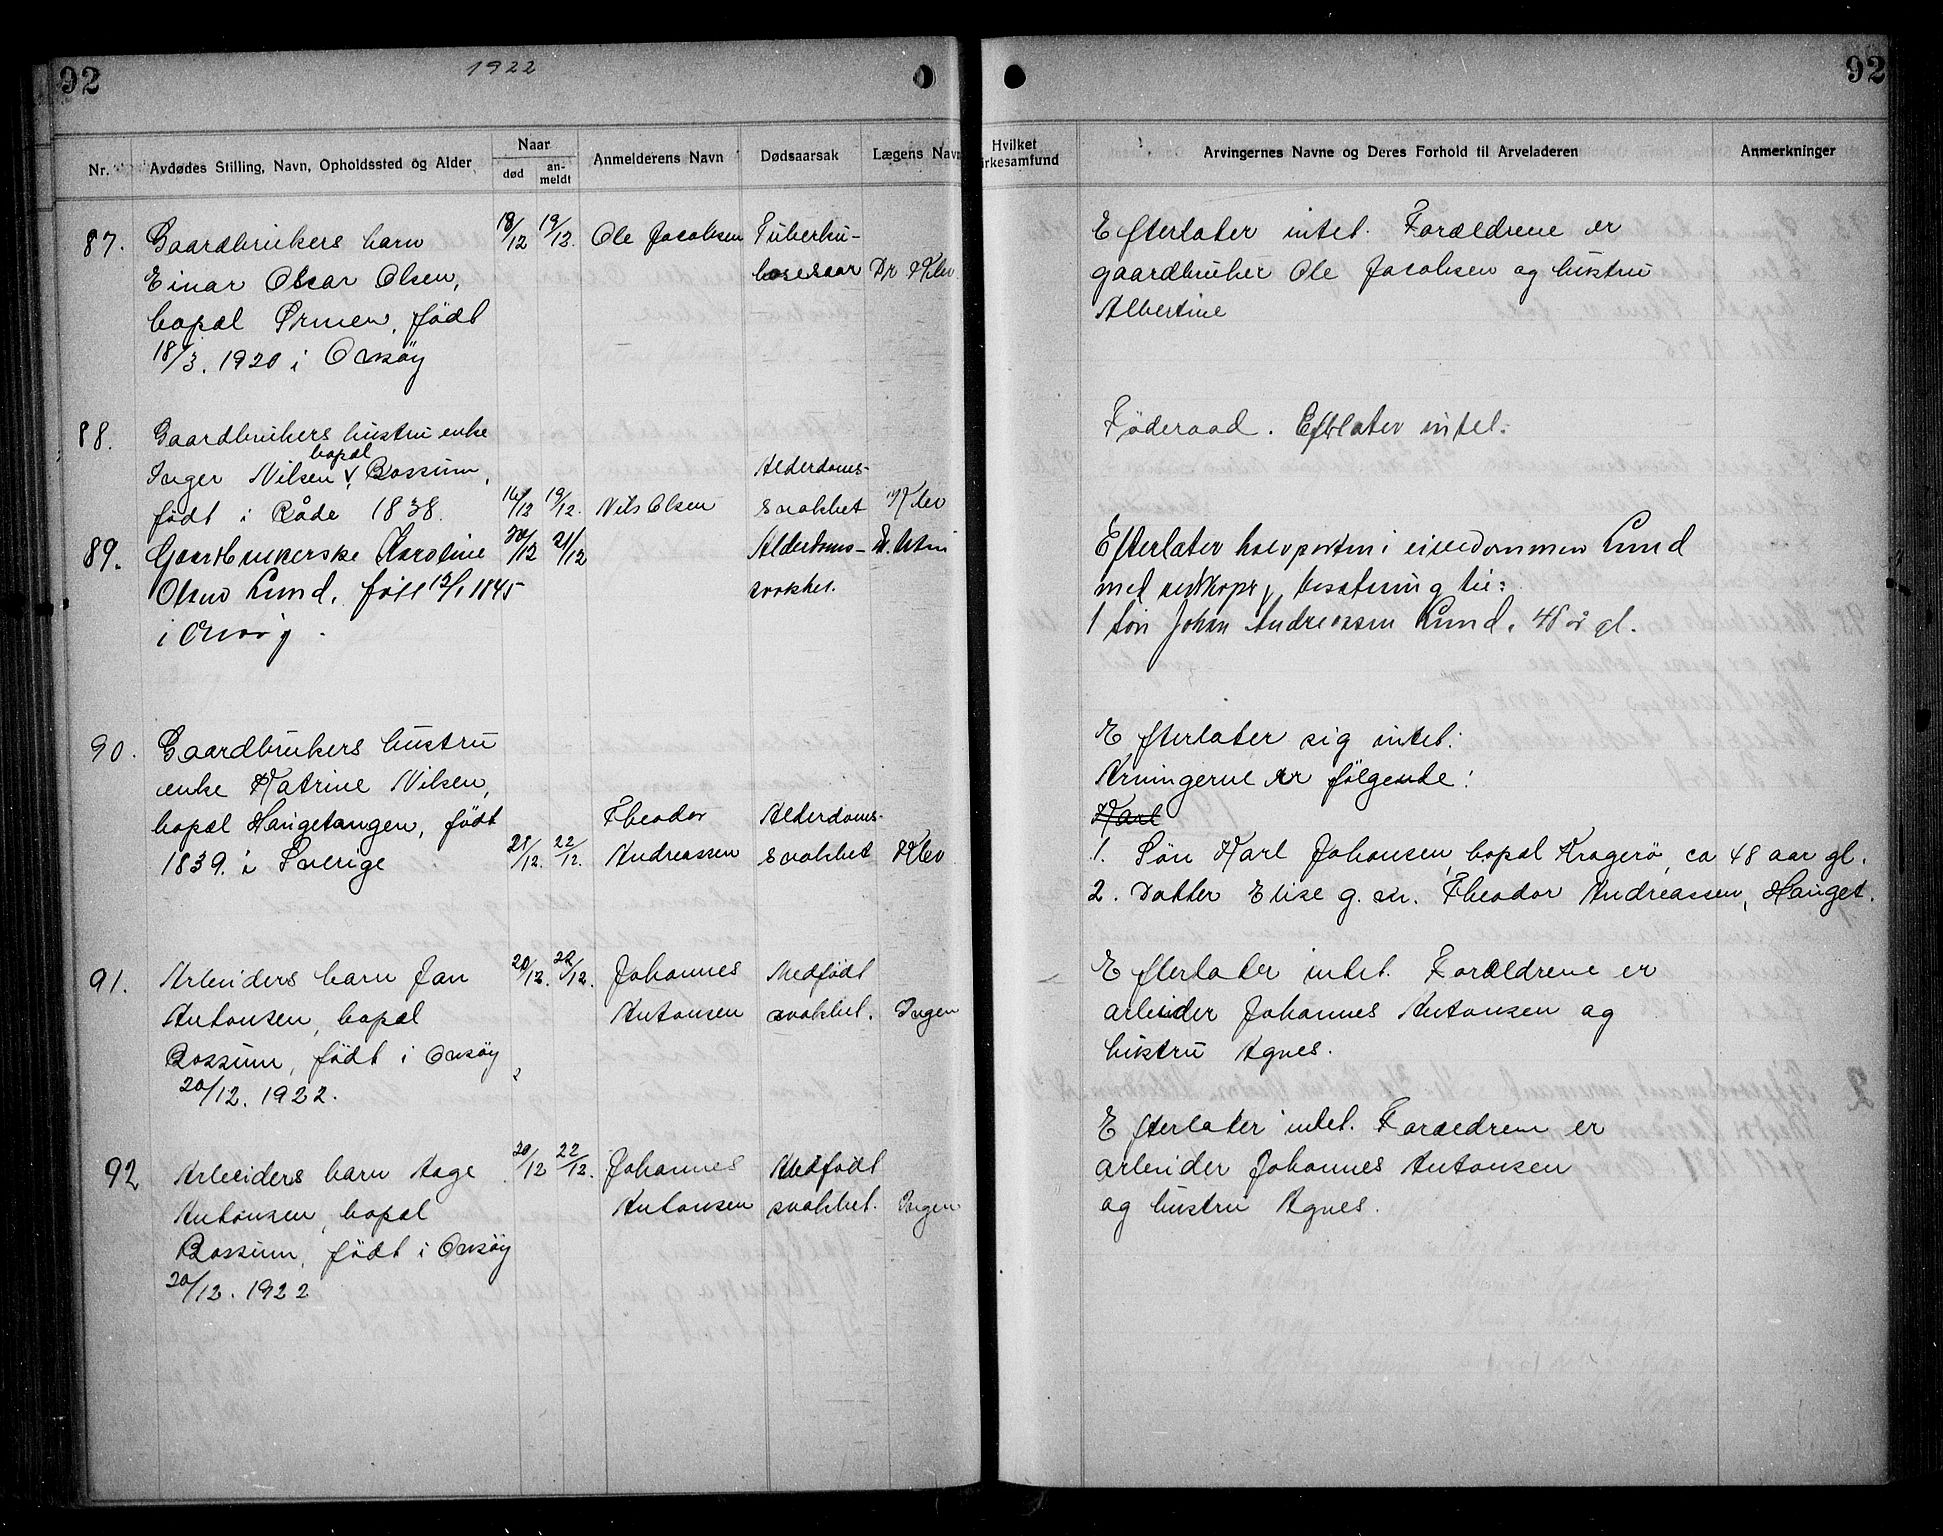 92
1922
92
Nr.
Avdødes Stilling, Navn, Opholdssted og Alder
Naar
død
an-
meldt
Anmelderens Navn
Dødsaarsak
Lægens Navn
Hvilket
irkesamfund
Arvingernes Navne og Deres Forhold til Arveladeren
Anmerkninger
87. Gaardbrukers barn 18/12 19/12. Ole Jacobsen Tuberku-
Einar Oscar Olsen, losesaar Dr Klev
bopæl Ørmen, født
18/3. 1920 i Onsöy
Efterlater intet. Forældrene er
gaardbruker Ole Jacobsen og hustru
Albertine
88. Gaardbrukers hustru enke
bopæl
Inger Nilsen v Rossum, Alderdoms-
født i Råde 1838. 16/12 19/12. Nils Olsen svakhet Klev
Føderaad. Efterlater intet.
89. Gaardbrukerske Karoline 20/12 21/12 Alderdoms-
Olsen Lund, født 12/1 1845 svakhet.
i Onsöy.
Efterlater halvparten i eiendommen Lund
med besætning til:
1 søn Johan Andreassen Lund, 48 år gl.
90. Gaardbrukers hustru
enke Katrine Nilsen,
bopæl Haugetangen, født Theodor Alderdoms-
1839. i Sverige 21/12. 22/12. Andreassen svakhet Klev
Efterlater sig intet.
Arvingerne er følgende:
Karl
1. Søn Karl Johansen, bopæl Kragerø, ca 48 aar gl.
2. Datter Elise g. m. Theodor Andreassen, Hauget.
91. Arbeiders barn Jan 20/12. 22/12. Johannes Medfødt
Antonsen, bopæl Antonsen svakhet. Ingen
Rossum, født i Onsøy
20/12. 1922.
Efterlater intet. Forældrene er
arbeider Johannes Antonsen og
hustru Agnes.
92 Arbeiders barn Aage 20/12 22/12. Johannes Medfødt
Antonsen, bopæl Antonsen svakhet. Ingen
Rossum, født i Onsøy
20/12. 1922
Efterlater intet. Forældrene er
arbeider Johannes Antonsen
og hustru Agnes.